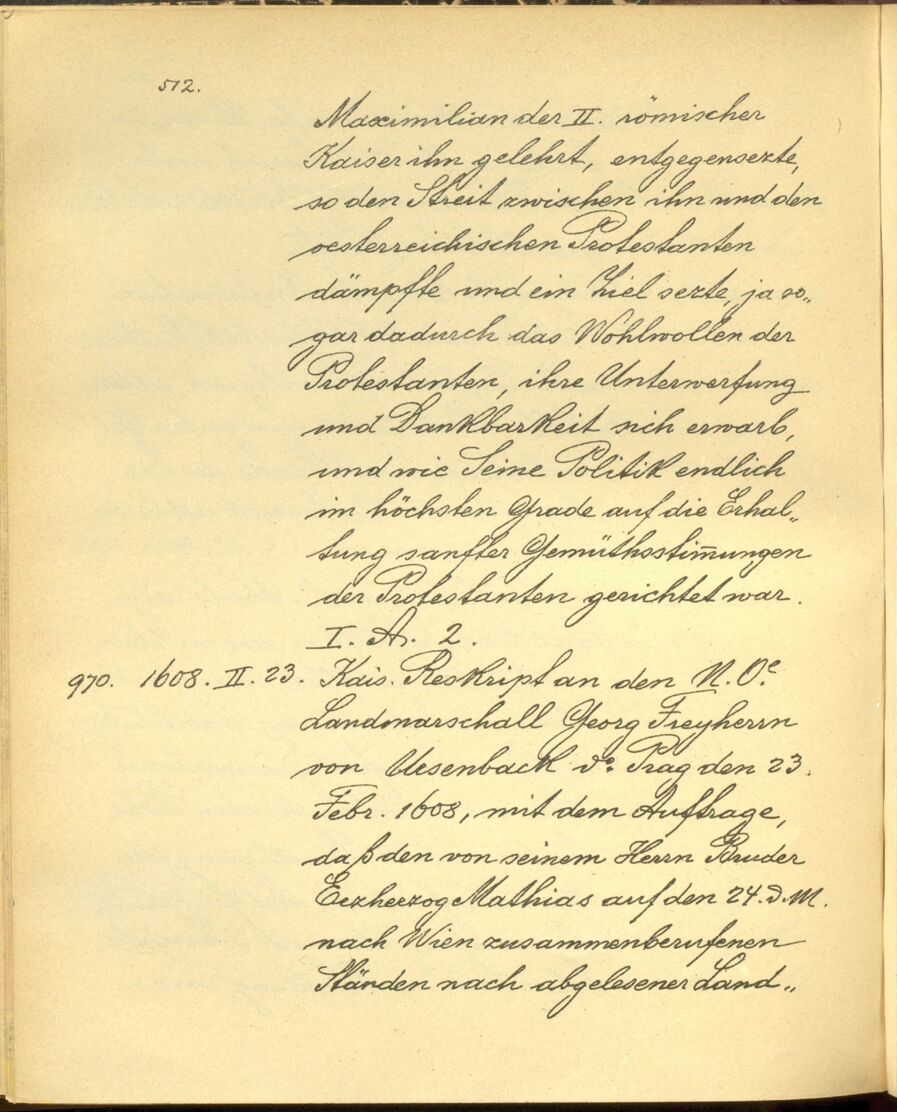 512.
Maximilian der II. römischer
Kaiser ihn gelehrt, entgegensezte,
so den Streit zwischen ihn und den
oesterreichischen Protestanten
dämpfte und ein Ziel sezte, ja so„
gar dadurch das Wohlwollen der
Protestanten, ihre Unterwerfung
und Dankbarkeit sich erwarb,
und wie Seine Politik endlich
im höchsten Grade auf die Erhal„
tung sanfter Gemüthsstim̄ungen
der Protestanten gerichtet war.
I. A. 2.
970. 1608. II. 23. Kais. Reskript an den N. Oe.
Landmarschall Georg Freyherrn
von Ursenback do. Prag den 23.
Febr. 1608, mit dem Auftrage,
daß den von seinem Herrn Bruder
Erzherzog Mathias auf den 24. d. M.
nach Wien zusammenberufenen
Ständen nach abgelesener Land„